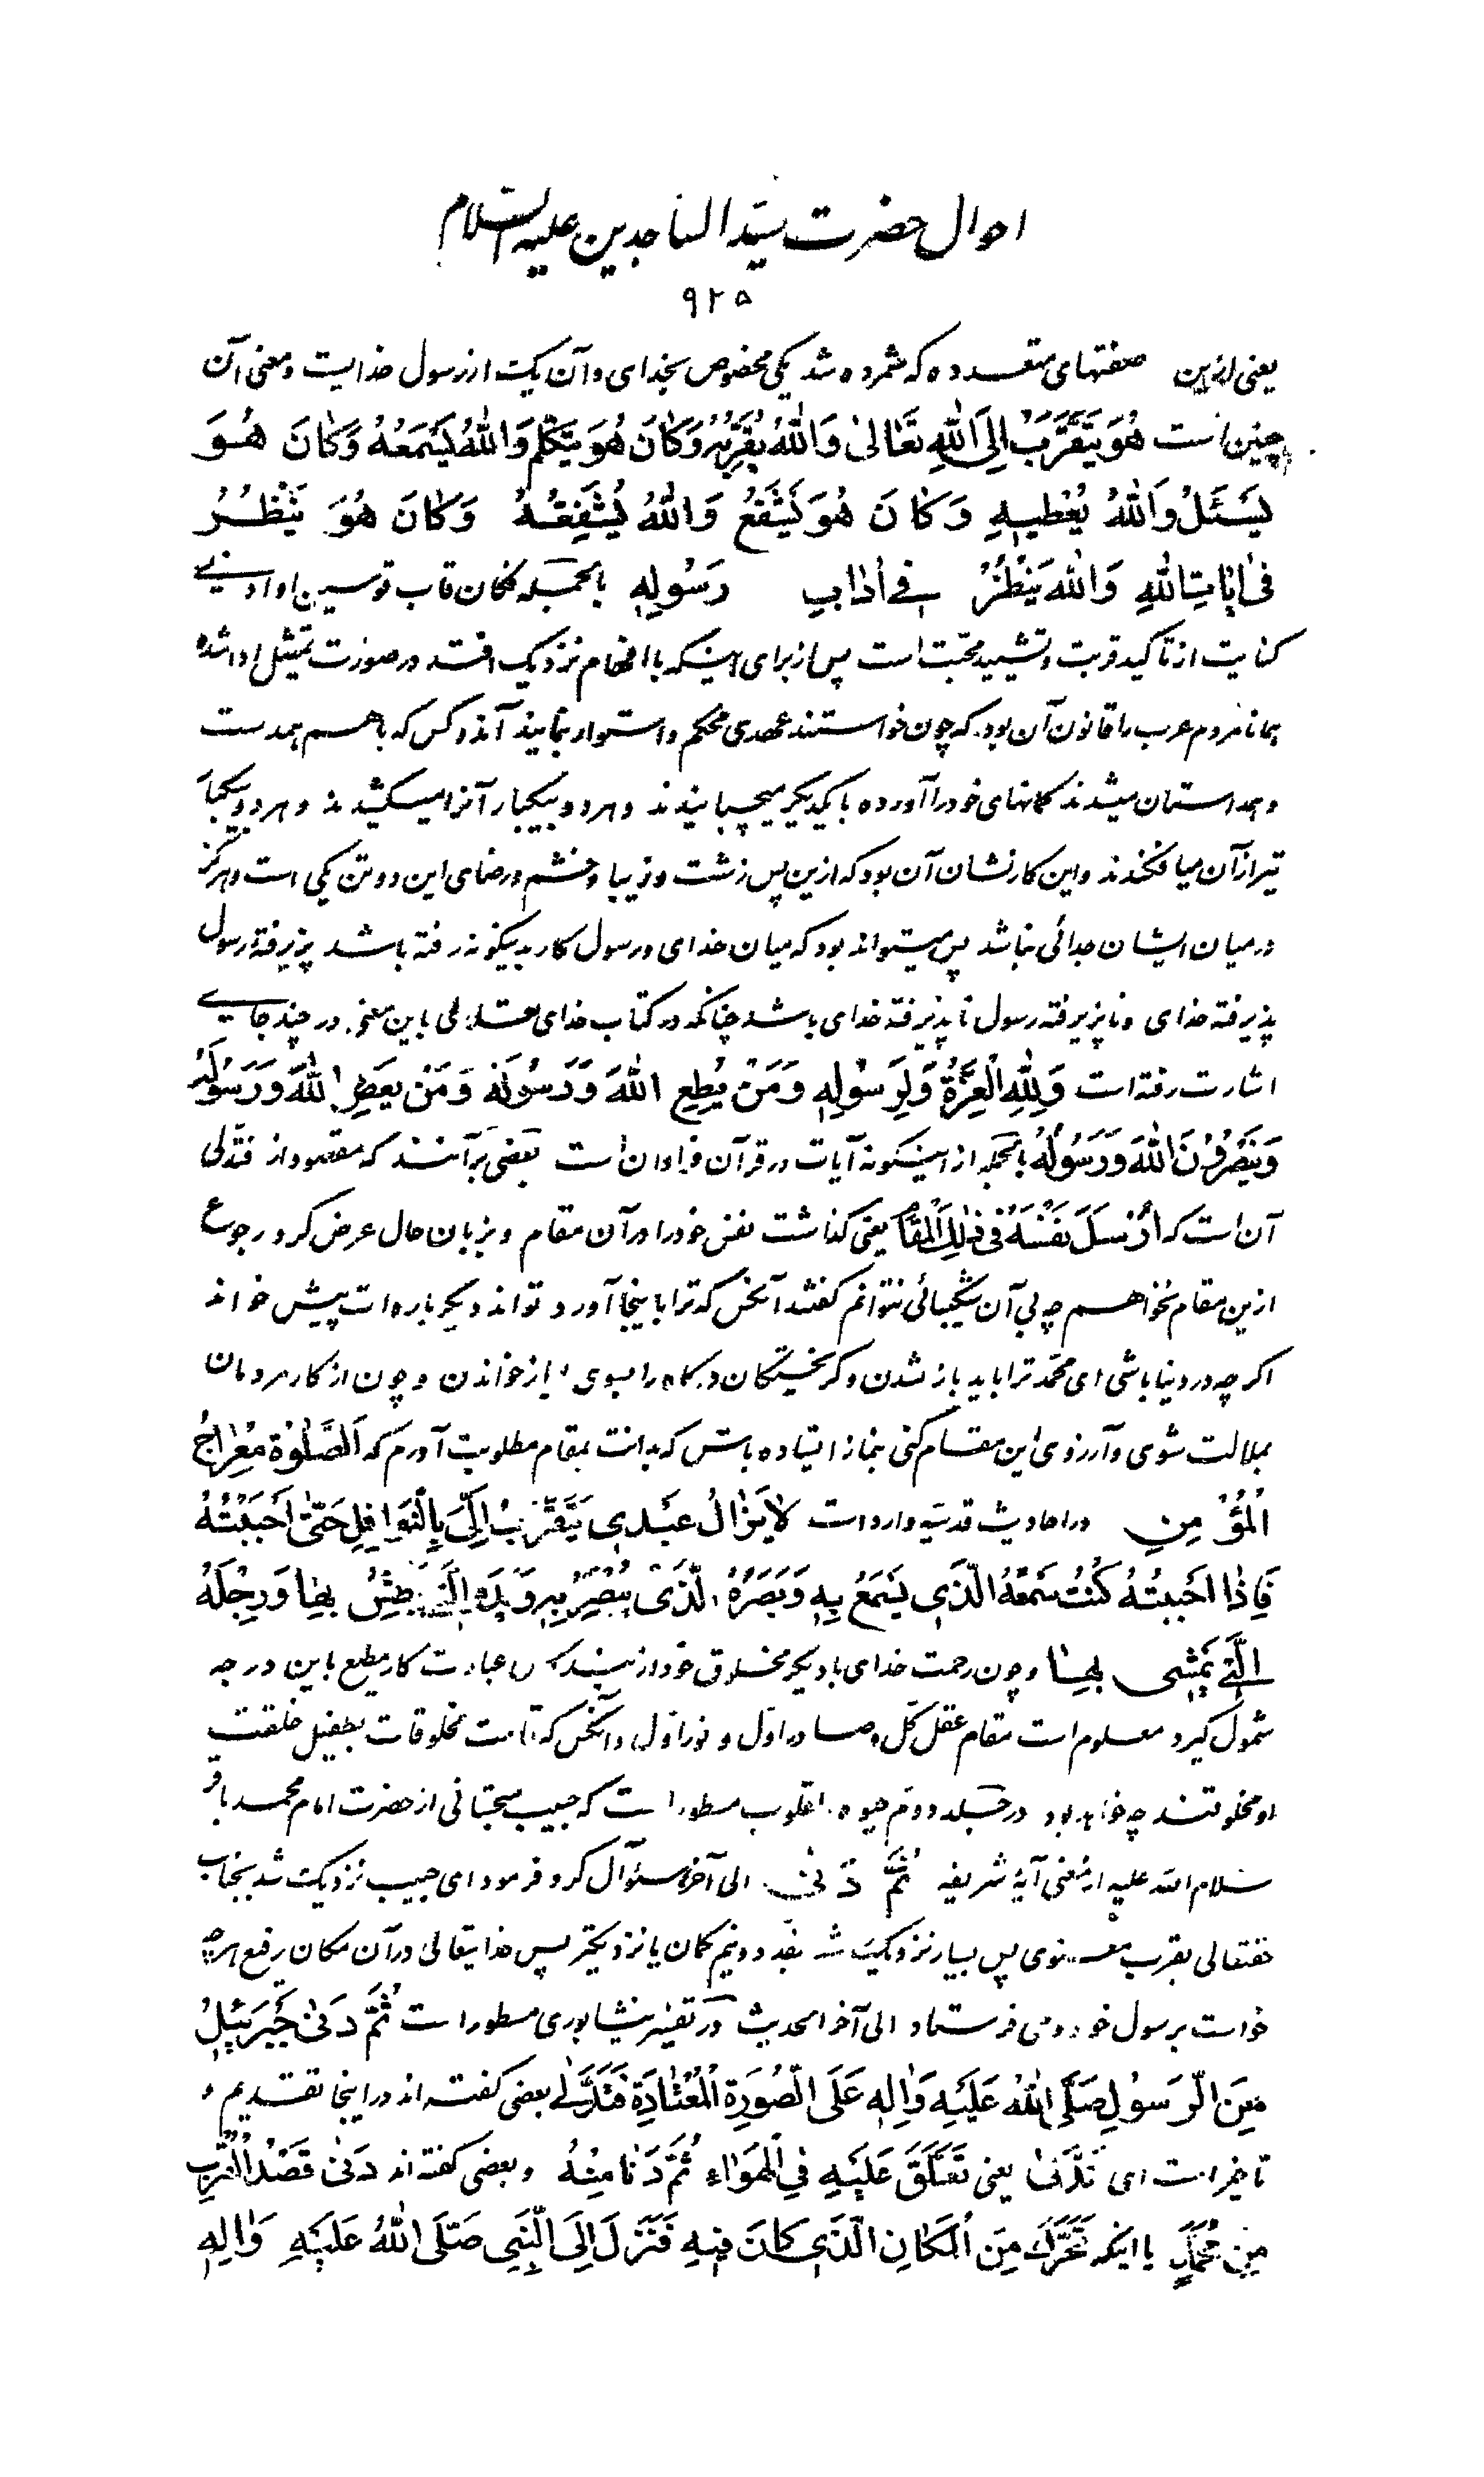 احوال حضرت سیّد الساجدین علیه السّلام
۹۲۵
یعنی ازین صفتهای متعدده که شمرده شد یکی مخصوص بخدای و آن یک از رسول خدایست و معنی آن
چنین است هُوَ يَتَقَرَّبُ اِلَى اللهِ تَعَالىٰ وَاللهُ يُقَرِّبُهُ وَكَانَ هُوَ يَتَكَلَّمُ وَاللهُ يَسْمَعُهُ وَكَانَ هُوَ
يَسْئَلُ وَاللهُ يُعْطِيهِ وَكَانَ هُوَ يَشْفَعُ وَاللهُ يُشَفِّعُهُ وَكَانَ هُوَ يَنْظُرُ
فِي اٰيَاتِ اللهِ وَاللهُ يَنْظُرُ فِي اٰدَابِ رَسُولِهِ بالجمله فکان قاب قوسین او ادنی
کنایت از تأکید قربت و تشیید محبّت است پس از برای اینکه با افهام نزدیک افتد در صورت تمثیل ادا شده
همانا مردم عرب را قانون آن بود که چون خواستند عهدی محکم و استوار نمایند آندو کس که با هم همدست
و همداستان میشدند کمانهای خود را آورده با یکدیگر میچسبانیدند و هر دو بیکبار آنرا میکشیدند و هر دو بیکبار
تیر از آن میافکندند و این کار نشان آن بود که ازین پس زشت و زیبا و خشم و رضای این دو تن یکی است و هرگز
در میان ایشان جدائی نباشد پس میتواند بود که میان خدای و رسول کار بدینگونه رفته باشد پذیرفته رسول
پذیرفته خدای و ناپذیرفته رسول ناپذیرفته خدای باشد چنانکه در کتاب خدای تعالی باین معنی در چند جای
اشارت رفته است وَلِلّٰهِ الْعِزَّةُ وَلِرَسُولِهِ وَمَنْ يُطِعِ اللهَ وَرَسُولَهُ وَمَنْ يَعْصِ اللهَ وَرَسُولَهُ
وَيَنْصُرُونَ اللهَ وَرَسُولَهُ بالجمله از اینگونه آیات در قرآن فراوان است بعضی برآنند که مقصود از فتدلی
آن است که اَرْسَلَ نَفْسَهُ فِي ذٰلِكَ الْمَقَامِ یعنی گذاشت نفس خود را در آن مقام و بزبان حال عرض کرد رجوع
ازین مقام نخواهم چه بی آن شکیبائی نتوانم گفتند آنکس که ترا باینجا آورد تواند دیگر باره‌ات پیش خواند
اگر چه در دنیا باشی ای محمّد ترا باید باز شدن و گریختگان درگاه را بسوی ما باز خواندن و چون از کار مردمان
بملالت شوی و آرزوی این مقام کنی بنماز ایستاده باش که بدانت بمقام مطلوبت آورم که اَلصَّلوٰةُ مِعْرَاجُ
الْمُؤْمِنِ در احادیث قدسیّه وارد است لَا يَزَالُ عَبْدِي يَتَقَرَّبُ اِلَيَّ بِالنَّوَافِلِ حَتّىٰ اَحْبَبْتُهُ
فَاِذَا اَحْبَبْتُهُ كُنْتُ سَمْعَهُ الَّذِي يَسْمَعُ بِهِ وَبَصَرَهُ الَّذِي يُبْصِرُ بِهِ وَيَدَهُ الَّتِي يَبْطِشُ بِهَا وَرِجْلَهُ
الَّتِي يَمْشِي بِهَا و چون رحمت خدای با دیگر مخلوق خود از عبادت کار مطیع باین درجه
شمول گیرد معلوم است مقام عقل کلّ و صادر اوّل و نور اوّل و آنکس که تمامت مخلوقات بطفیل خلقت
او مخلوقند چه خواهد بود در جلد دوّم حیوة القلوب مسطور است که حبیب سجستانی از حضرت امام محمد باقر
سلام الله علیه از معنی آیهٔ شریفه ثُمَّ دَنىٰ الی آخره سئوال کرد فرمود ای حبیب نزدیک شد بجناب
حقتعالی بقرب معنوی پس بسیار نزدیک شد بقدر دو نیم کمان یا نزدیکتر پس خدایتعالی در آن مکان رفیع هرچه
خواست برسول خود وحی فرستاد الی آخر الحدیث در تفسیر نیشابوری مسطور است ثُمَّ دَنىٰ جَبْرَئِيلُ
مِنَ الرَّسُولِ صَلَّى اللهُ عَلَيْهِ وَاٰلِهِ عَلَى الصُّورَةِ الْمُعْتَادَةِ فَتَدَلّىٰ بعضی گفته‌اند در اینجا تقدیم و
تاخیر است ای تَدَلّىٰ یعنی تَعَلَّقَ عَلَيْهِ فِي الْهَوَاءِ ثُمَّ دَنَا مِنْهُ و بعضی گفته‌اند دَنىٰ قَصَدَ الْقُرْبَ
مِنْ مُحَمَّدٍ یا اینکه تَحَرَّكَ مِنَ الْمَكَانِ الَّذِي كَانَ فِيهِ فَنَزَلَ اِلَى النَّبِيِّ صَلَّى اللهُ عَلَيْهِ وَاٰلِهِ